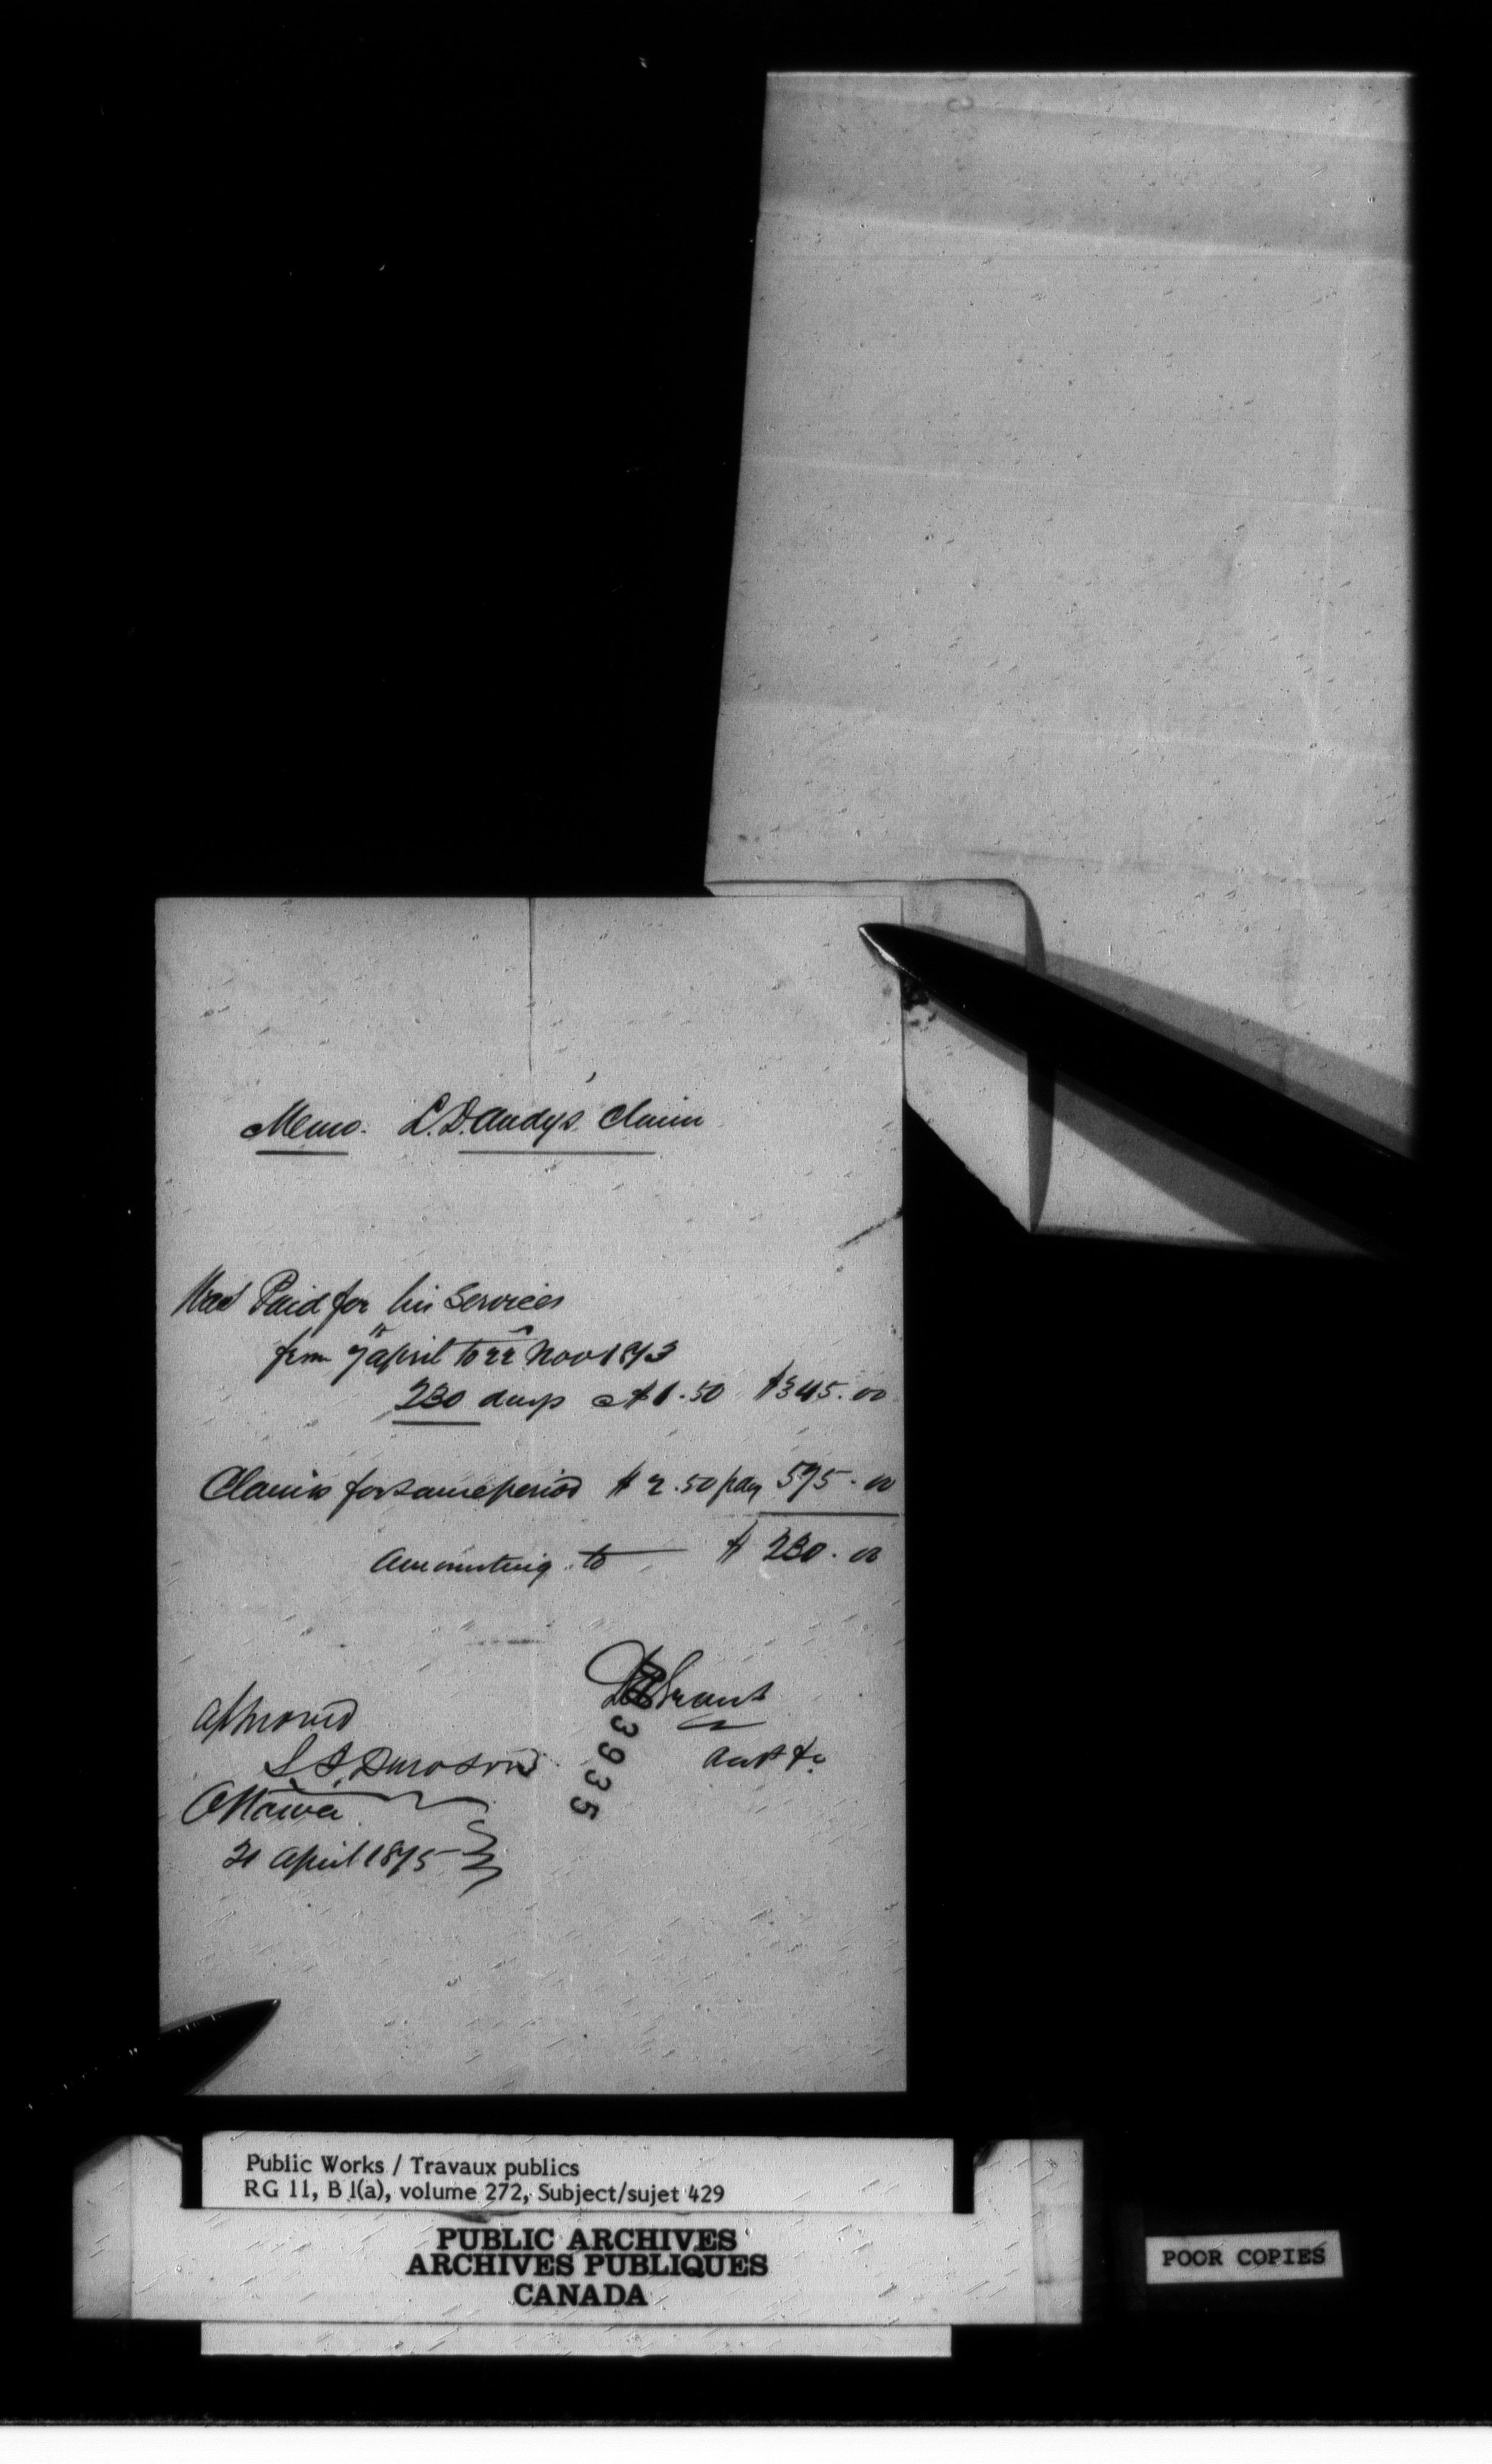 Memo. L. D. Audy's Claim
Was Paid for his Services
from 7th April to 22nd Nov 1873
230 days @ $1.50 $345.00
Claims for same period $2.50 p day 575.00
Amounting to — $230.00
Grant
approved
S. J. Dawson
Ottawa
21 April 1875
3935
Public Works / Travaux publics
RG 11, B 1(a), volume 272, Subject/sujet 429
PUBLIC ARCHIVES
ARCHIVES PUBLIQUES
CANADA
POOR COPIES